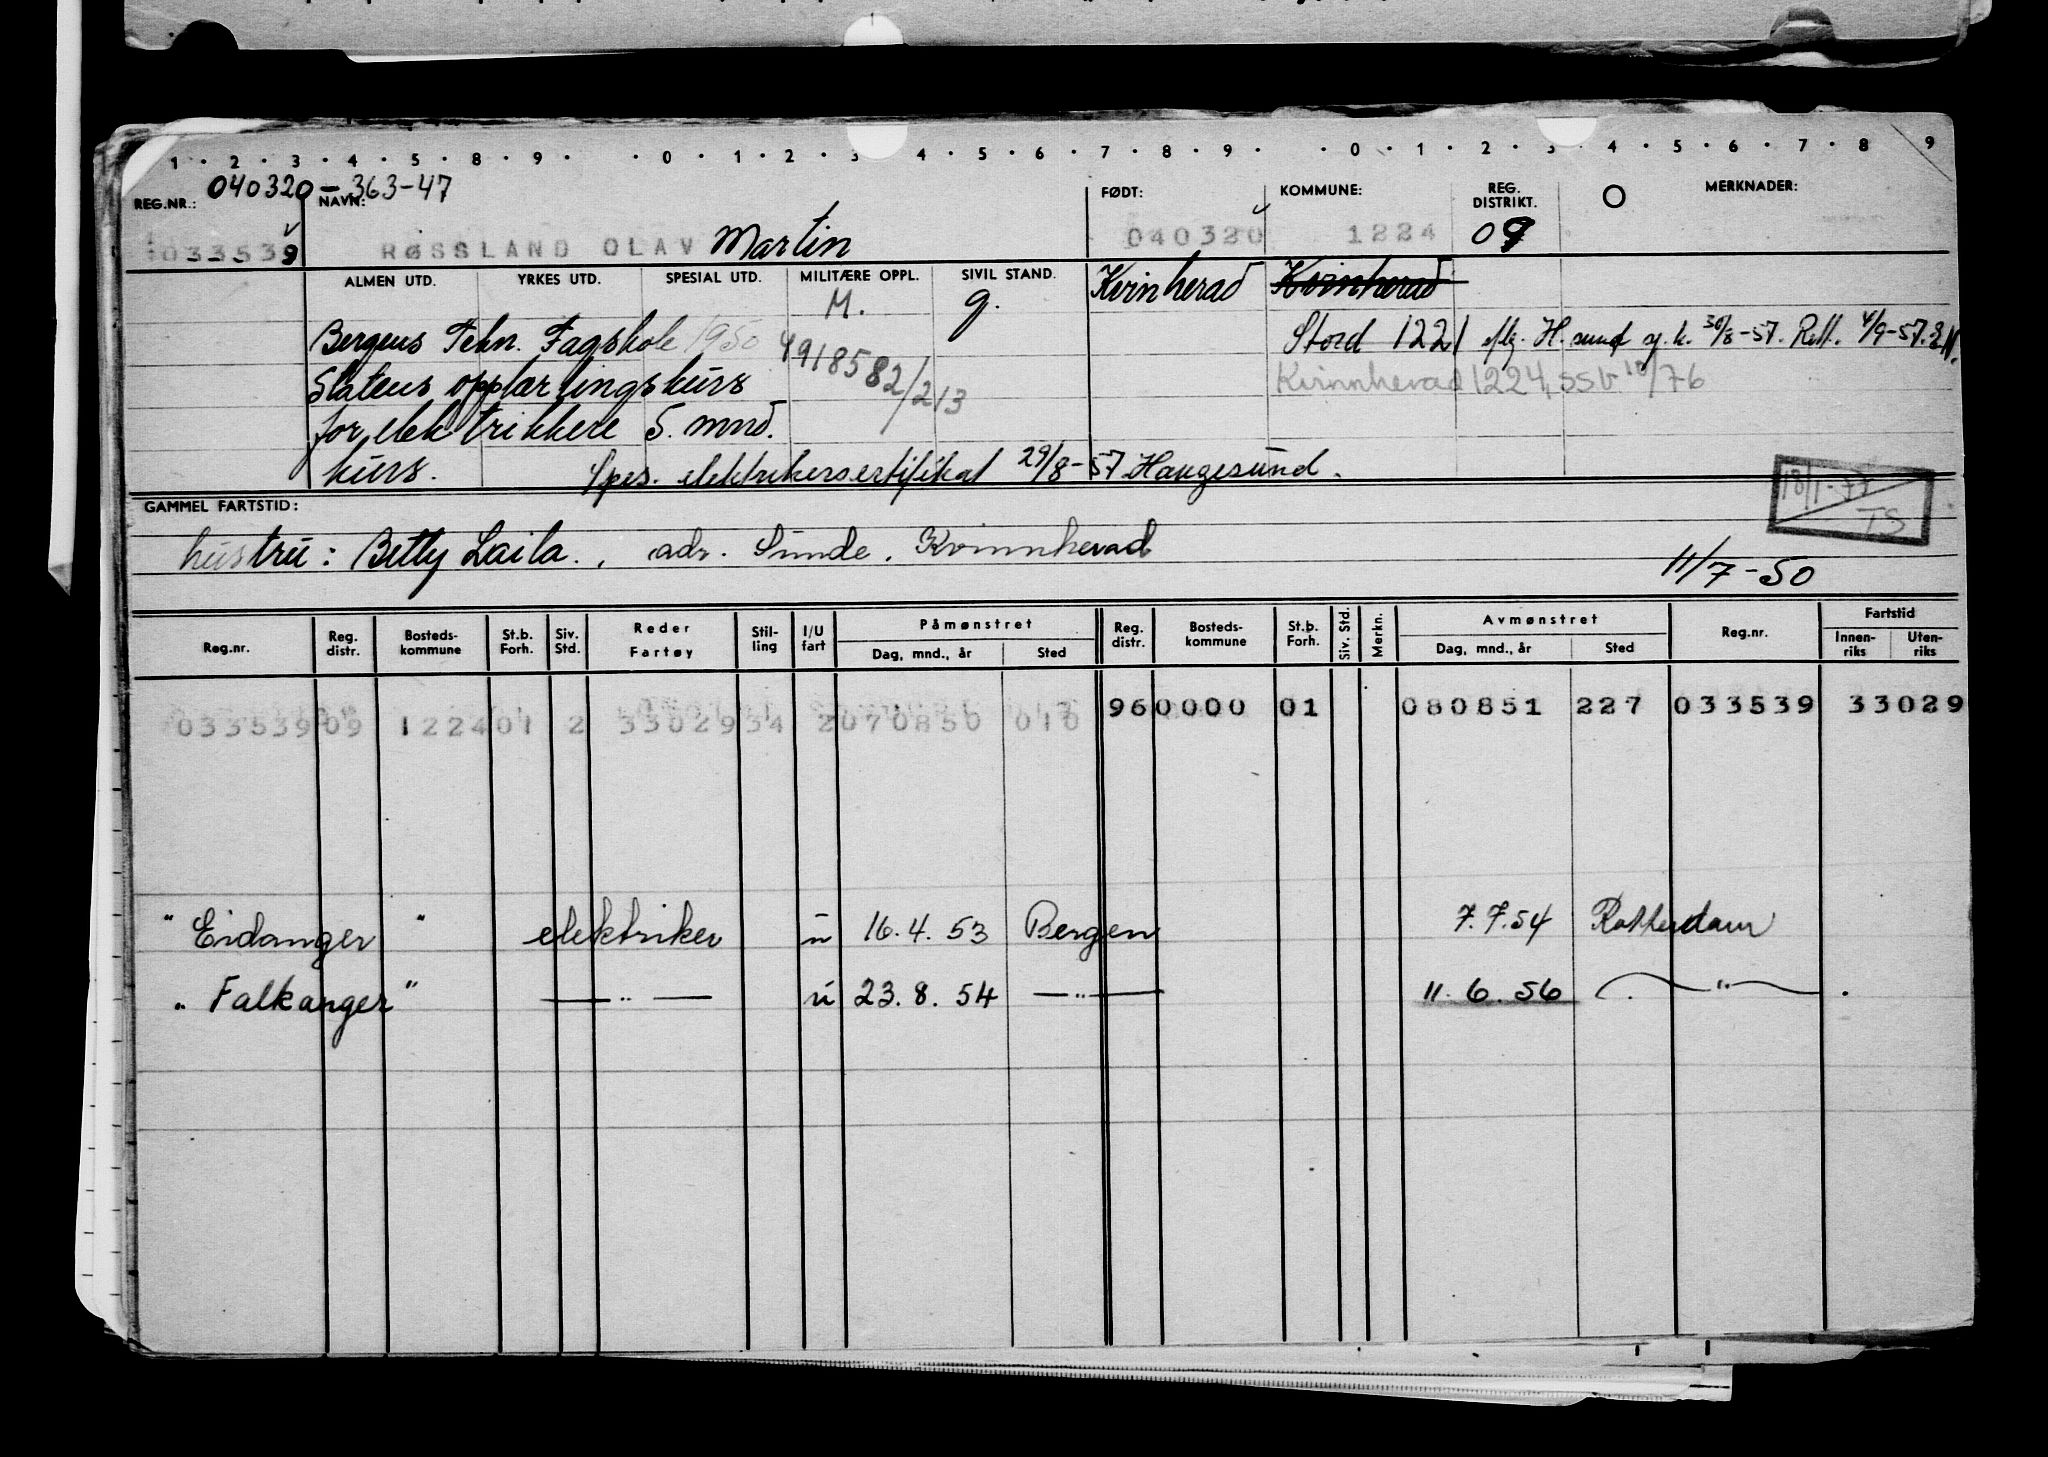 1 · 2 · 3 · 4 · 5 · 8 · 9 · · 0 · 1 · 2 · 3 · 4 · 5 · 6 · 7 · 8 · 9 · · 0 · 1 · 2 · 3 · 4 · 5 · 6 · 7 · 8 · 9
040320-363-47
REG.NR.: NAVN: FØDT: KOMMUNE: REG. DISTRIKT. O MERKNADER:
033539 RØSSLAND OLAV Martin 040320 1224 09
ALMEN UTD. YRKES UTD. SPESIAL UTD. MILITÆRE OPPL. SIVIL STAND. Kvinherad Kvinherad
M. g.
Bergens Tekn. Fagskole 1950 4918582/213 Stord 1221 eflg. H.sund sj.k. 30/8-57. Rett. 4/9-57.
Statens opplærlingskurs Kvinnherad 1224, SSV 10/76
for elektrikkere 5. mnd.
kurs. Spes. elektrikersertifikat 29/8-57 Haugesund.
GAMMEL FARTSTID: 18/1-77 TS
hustru: Betty Laila., adr. Sunde. Kvinnherad
11/7-50
Reg.nr. Reg. distr. Bosteds-kommune St.b. Forh. Siv. Std. Reder Fartøy Stil-ling I/U fart Påmønstret Dag, mnd., år Sted Reg. distr. Bosteds-kommune St.b. Forh. Siv. Std. Merkn. Avmønstret Dag, mnd., år Sted Reg.nr. Fartstid Innen-riks Uten-riks
033539 09 1224 01 2 33029 34 2 070850 010 96 0000 01 080851 227 033539 33029
"Eidanger" elektriker u 16.4.53 Bergen 7.7.54 Rotterdam
"Falkanger" —"— u 23.8.54 —"— 11.6.56 —"— .